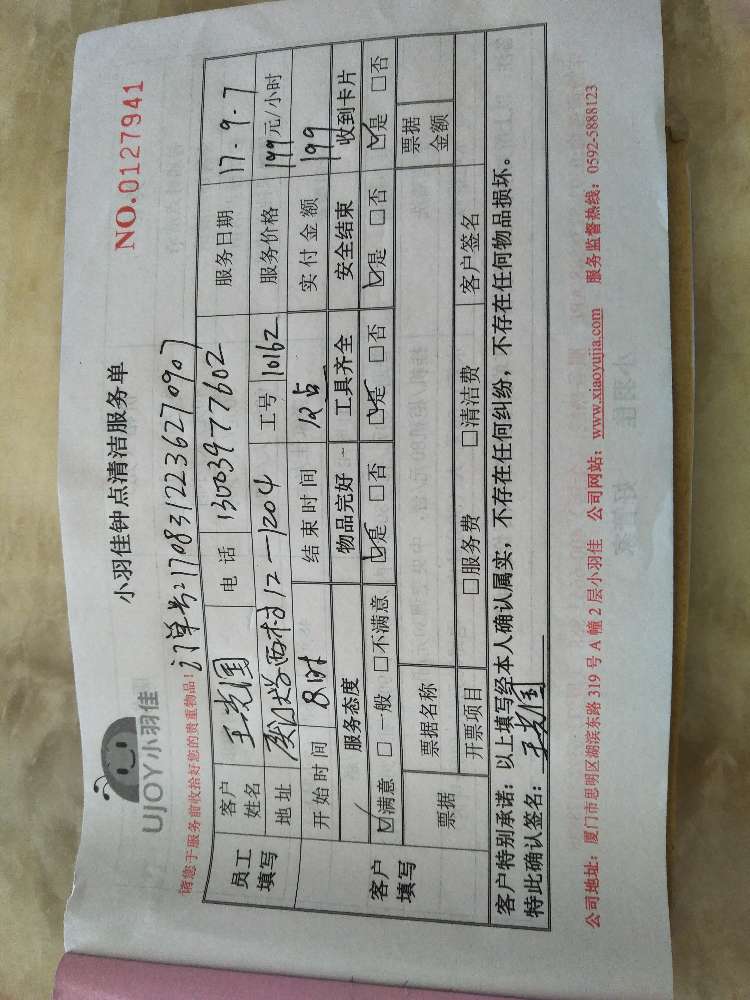 UJOY小羽佳
小羽佳钟点清洁服务单
NO.0127941
请您于服务前收拾好您的贵重物品!
订单号:1708312236270907
员工填写
客户姓名 王光国 电话 13003977602 服务日期 17.9.7
地址 西村12-1204 工号 10162 服务价格 199元/小时
开始时间 8时 结束时间 实付金额 199
客户填写
服务态度 物品完好 工具齐全 安全结束 收到卡片
☑满意 □一般 □不满意 ☑是 □否 ☑是 □否 ☑是 □否 ☑是 □否
票据 票据名称 票据金额
开票项目 □服务费 □清洁费 客户签名
客户特别承诺:以上填写经本人确认属实,不存在任何纠纷,不存在任何物品损坏。
特此确认签名:王光国
公司地址:厦门市思明区湖滨东路319号A幢2层小羽佳 公司网站:www.xiaoyujia.com 服务监督热线:0592-5888123